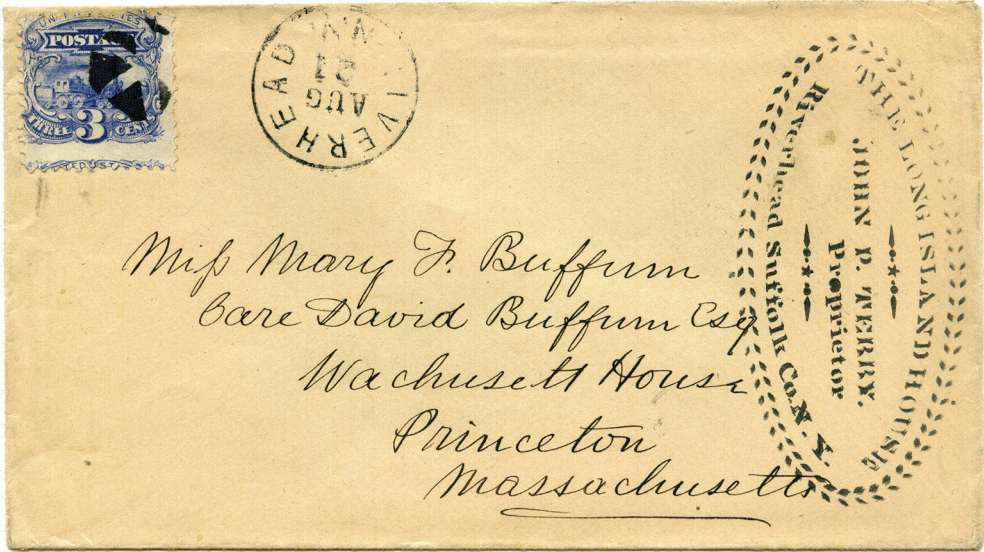 UNITED STATES
POSTAGE
THREE 3 CENTS
RIVERHEAD N.Y.
AUG
21
THE LONG ISLAND HOUSE
JOHN P. TERRY,
Proprietor
Riverhead Suffolk Co. N. Y.
Miſs Mary F. Buffum
Care David Buffum Esq
Wachusett House
Princeton
Massachusetts